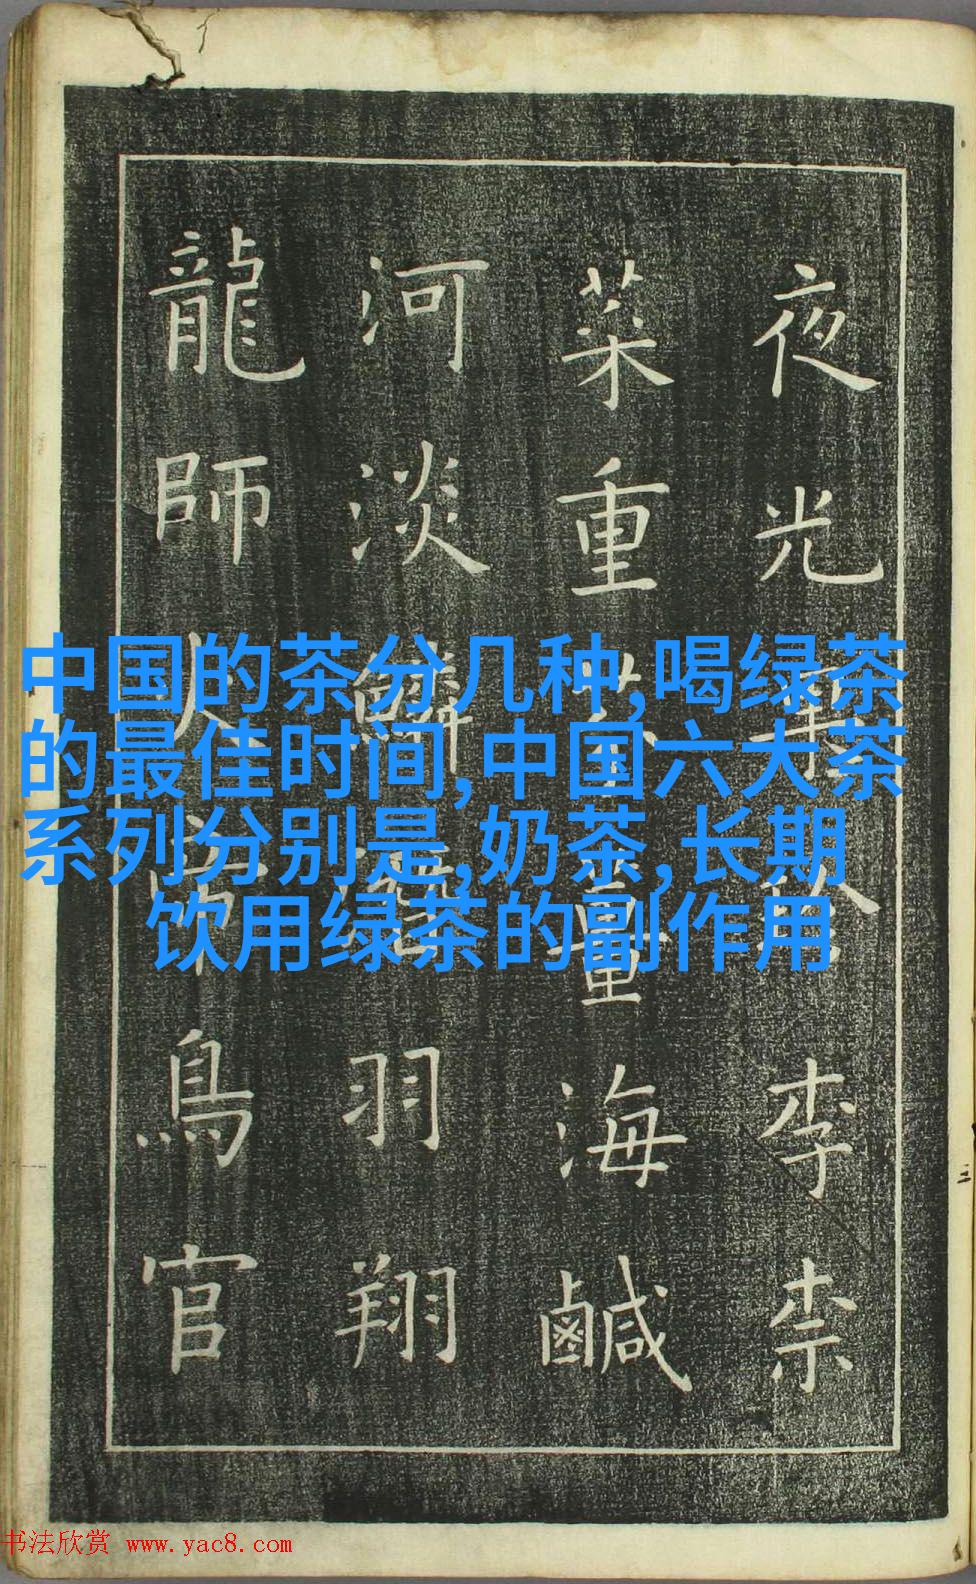 夜光李柰
菜重海鹹
河淡鱗羽翔
龍師火帝鳥官
中国的茶分几种,喝绿茶
的最佳时间,中国六大茶
系列分别是,奶茶,长期
饮用绿茶的副作用
书法欣赏 www.yac8.com